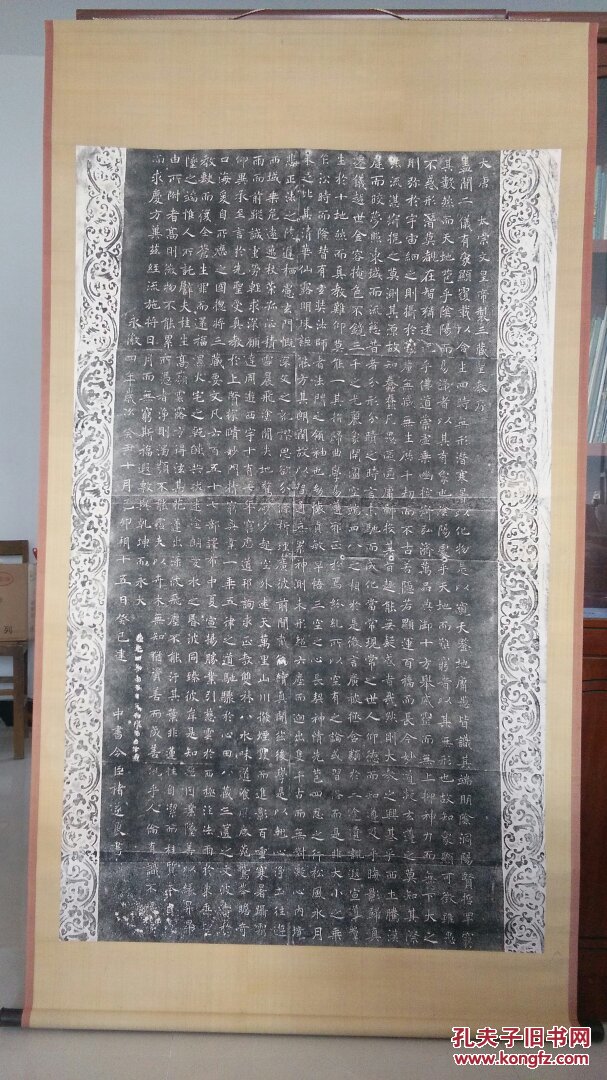 大唐 太宗文皇帝製三藏聖教序
蓋聞二儀有像顯覆載以含生四時無形潛寒暑以化物是以窺天鑒地庸愚皆識其端明陰洞陽賢哲罕窮
其數然而天地苞乎陰陽而易識者以其有像也陰陽處乎天地而難窮者以其無形也故知象顯可徵雖愚
不惑形潛莫覩在智猶迷況乎佛道崇虛乘幽控寂弘濟萬品典御十方舉威靈而無上抑神力而無下大之
則彌於宇宙細之則攝於毫釐無滅無生歷千劫而不古若隱若顯運百福而長今妙道凝玄遵之莫知其際
法流湛寂挹之莫測其源故知蠢蠢凡愚區區庸鄙投其旨趣能無疑惑者哉然則大教之興基乎西土騰漢
庭而皎夢照東域而流慈昔者分形分跡之時言未馳而成化當常現常之世人仰德而知遵及乎晦影歸真
遷儀越世金容掩色不鏡三千之光麗象開圖空端四八之相於是微言廣被拯含類於三途遺訓遐宣導羣
生於十地然而真教難仰莫能一其指歸曲學易遵邪正於焉紛糺所以空有之論或習俗而是非大小之乘
乍沿時而隆替有玄奘法師者法門之領袖也幼懷貞敏早悟三空之心長契神情先苞四忍之行松風水月
未足比其清華仙露明珠詎能方其朗潤故以智通無累神測未形超六塵而迥出隻千古而無對凝心內境
悲正法之陵遲栖慮玄門慨深文之訛謬思欲分條析理廣彼前聞截偽續真開茲後學是以翹心淨土往遊
西域乘危遠邁杖策孤征積雪晨飛塗間失地驚砂夕起空外迷天萬里山川撥煙霞而進影百重寒暑躡霜
雨而前蹤誠重勞輕求深願達周遊西宇十有七年窮歷道邦詢求正教雙林八水味道飡風鹿苑鷲峯瞻奇
仰異承至言於先聖受真教於上賢探賾妙門精窮奧業一乘五律之道馳驟於心田八藏三篋之文波濤於
口海爰自所歷之國總將三藏要文凡六百五十七部譯布中夏宣揚勝業引慈雲於西極注法雨於東垂聖
教缺而復全蒼生罪而還福濕火宅之乾焰共拔迷途朗愛水之昏波同臻彼岸是知惡因業墜善以緣昇昇
墜之端惟人所託譬夫桂生高嶺雲露方得泫其花蓮出淥波飛塵不能污其葉非蓮性自潔而桂質本貞良
由所附者高則微物不能累所憑者淨則濁類不能霑夫以卉木無知猶資善而成善況乎人倫有識不緣慶
而求慶方冀茲經流施將日月而無窮斯福遐敷與乾坤而永大
永徽四年歲次癸丑十月己卯朔十五日癸巳建 中書令臣褚遂良書
列
孔夫子旧书网
www.kongfz.com